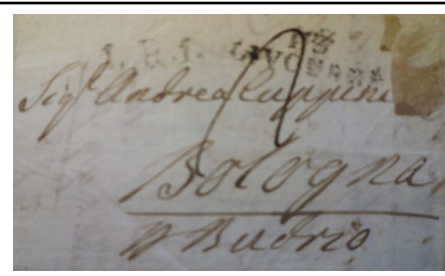 113
LIVOURNE
Sigr Andrea Cuppini
Bologna
p Budrio